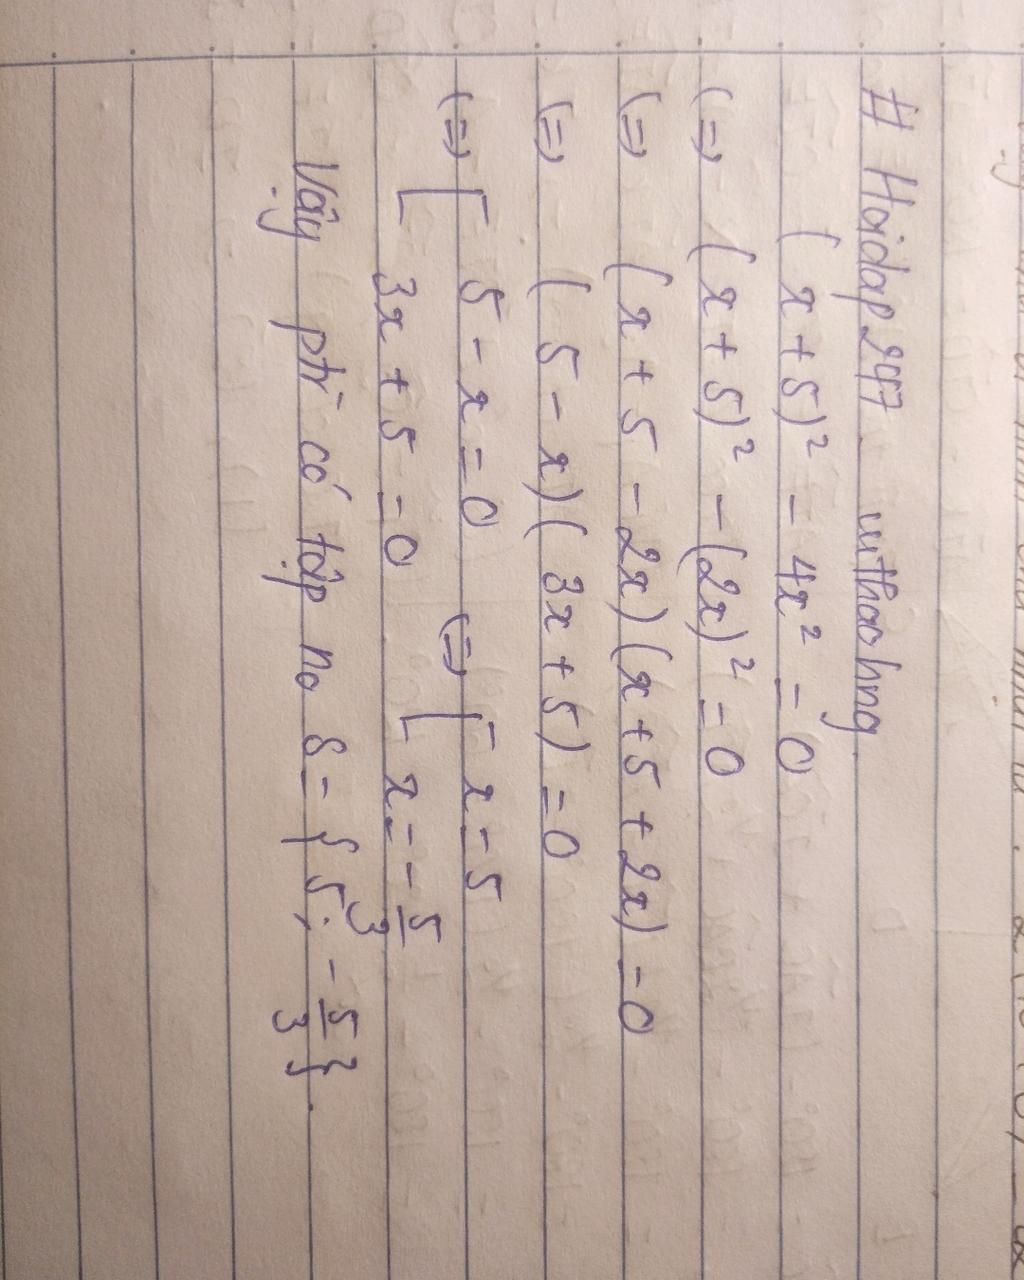 # Hoidap247 vuthaohng
(x + 5)² - 4x² = 0
(=) (x + 5)² - (2x)² = 0
(=) (x + 5 - 2x) (x + 5 + 2x) = 0
(=) (5 - x) (3x + 5) = 0
(=) [ 5 - x = 0 (=) [ x = 5
3x + 5 = 0 x = - 5/3
Vậy ptr có tập no S = { 5 ; - 5/3 }.